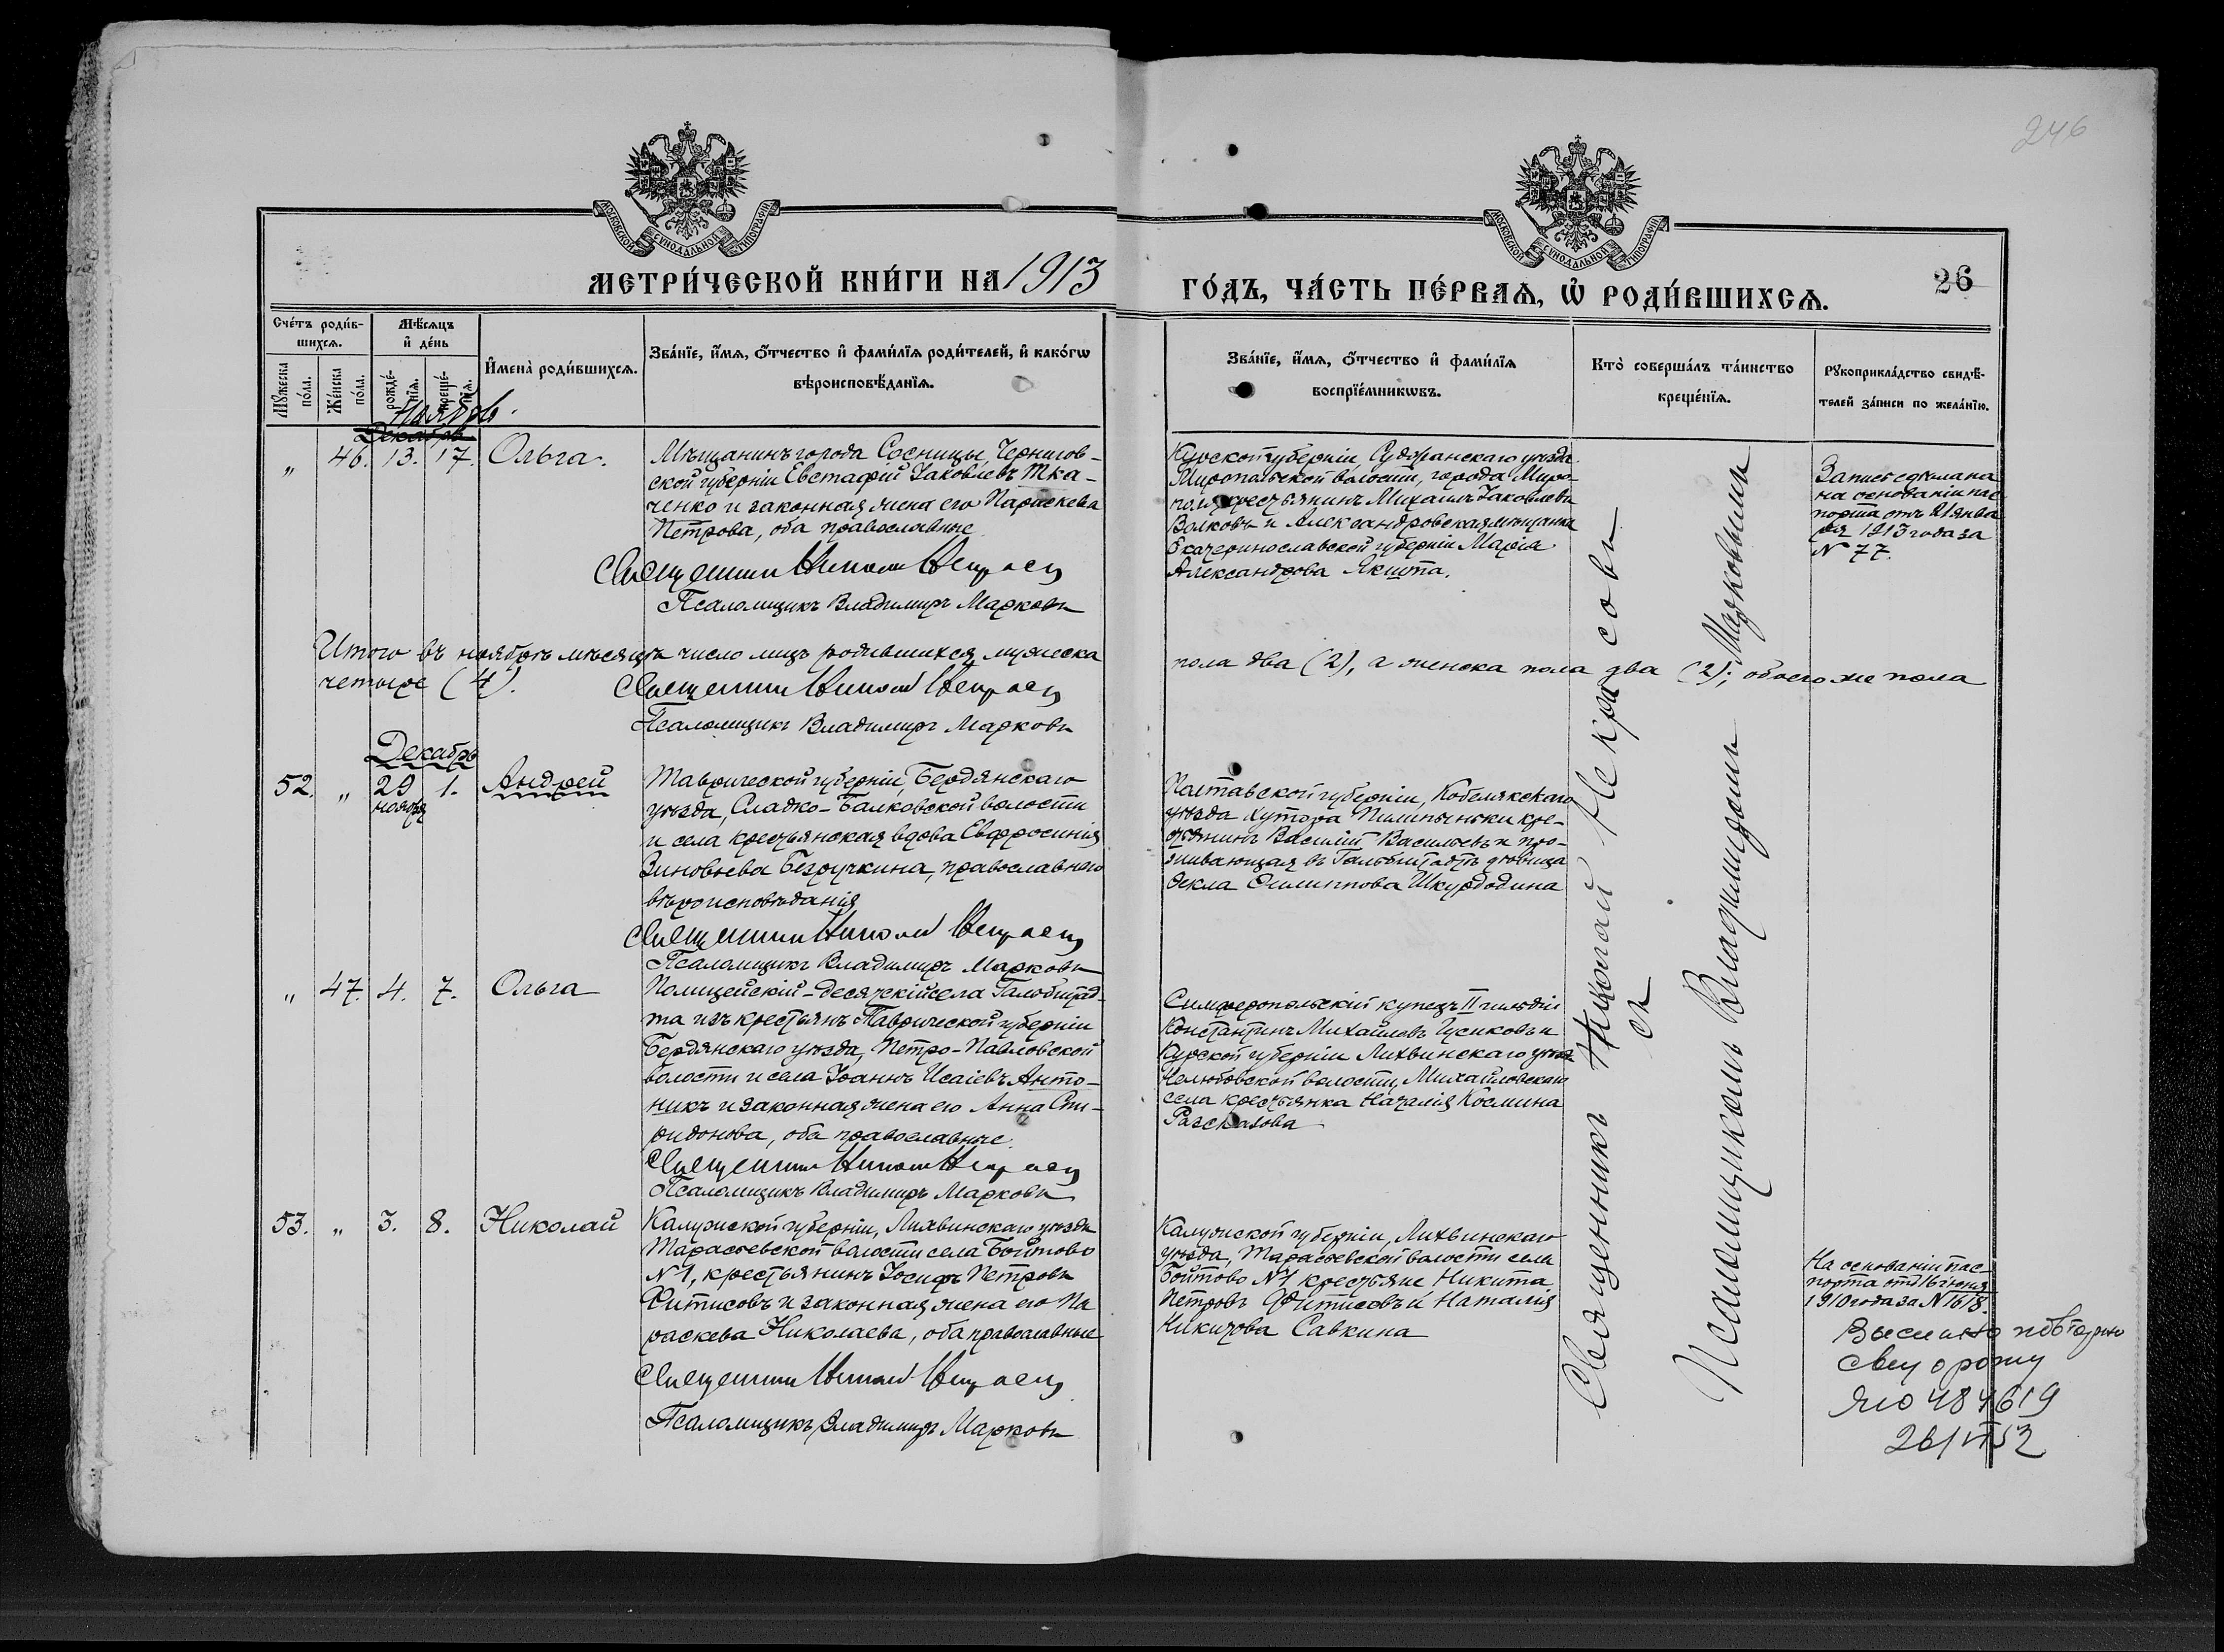 246
МОСКОВСКОЙ СѴНОДАЛЬНОЙ ТИПОГРАФІИ
МОСКОВСКОЙ СѴНОДАЛЬНОЙ ТИПОГРАФІИ
МЕТРИ́ЧЕСКОЙ КНИ́ГИ НА 1913
ГО́ДЪ, ЧА́СТЬ ПЕ́РВАѦ, Ѡ҆ РОДИ́ВШИХСѦ.
26
Сче́тъ роди́в-
шихсѧ.
Мꙋжеска по́ла.
Же́нска по́ла.
Мѣ́сѧцъ
и҆ де́нь
рожде́-нїѧ.
креще́-нїѧ.
И҆мена̀ роди́вшихсѧ.
Зва́нїе, и҆́мѧ, ѻ҆́тчество и҆ фами́лїѧ роди́телей, и҆ како́гѡ
вѣроисповѣ́данїѧ.
Зва́нїе, и҆́мѧ, ѻ҆́тчество и҆ фами́лїѧ
воспрїе́мникѡвъ.
Кто̀ соверша́лъ та́инство
креще́нїѧ.
Рꙋкоприкла́дство свидѣ́-
телей за́писи по жела́нїю.
Ноябрь.
Декабрь
„ 46. 13. 17. Ольга.
Мѣщанинъ города Сосницы, Чернигов-
ской губерніи Евстафій Іаковлевъ Тка-
ченко и законная жена его Параскева
Петрова, оба православные
Священникъ Николай Некрасовъ
Псаломщикъ Владимиръ Марковъ
Курской губерніи Суджанскаго уѣзда
Миропольской волости, города Миро-
полья крестьянинъ Михаилъ Іаковлевъ
Волковъ и Александровская мѣщанка
Екатеринославской губерніи Марія
Александрова Якшта.
Запись сдѣлана
на основаніи пас
порта отъ 21 янва
ря 1913 года за
№ 77.
Итого въ ноябрѣ мѣсяцѣ число лицъ родившихся мужеска
пола два (2), а женска пола два (2); обоего же пола
четыре (4).
Священникъ Николай Некрасовъ
Псаломщикъ Владимиръ Марковъ
Декабрь
52. „ 29 ноября 1. Андрей
Таврической губерніи, Бердянскаго
уѣзда, Сладко-Балковской волости
и села крестьянская вдова Евфросинія
Зиновьева Безручкина, православнаго
вѣроисповѣданія
Священникъ Николай Некрасовъ
Псаломщикъ Владимиръ Марковъ
Полтавской губерніи, Кобелякскаго
уѣзда хутора кре-
стьянинъ Василій Васильевъ и про-
живающая въ Гальбштадтѣ дѣвица
Ѳекла Филиппова Шкурдодина
„ 47. 4. 7. Ольга
Полицейскій-десятскій села Гальбштад-
та изъ крестьянъ Таврической губерніи
Бердянскаго уѣзда, Петро-Павловской
волости и села Іоаннъ Исаіевъ Анто-
никъ и законная жена его Анна Спи-
ридонова, оба православные.
Священникъ Николай Некрасовъ
Псаломщикъ Владимиръ Марковъ
Симферопольскій купецъ II гильдіи
Константинъ Михайловъ Гусиковъ и
Курской губерніи Лихвинскаго уѣзда
Нелюбовской волости, Михайловскаго
села крестьянка Наталія Космина
Разсказова
53. „ 3. 8. Николай
Калужской губерніи, Лихвинскаго уѣзда
Тарасьевской волости села Бойтово
№ 1, крестьянинъ Іосифъ Петровъ
Фитисовъ и законная жена его Па
раскева Николаева, оба православные
Священникъ Николай Некрасовъ
Псаломщикъ Владимиръ Марковъ
Калужской губерніи, Лихвинскаго
уѣзда, Тарасьевской волости села
Бойтово № 1 крестьяне Никита
Петровъ Фитисовъ и Наталія
Никитова Савкина
На основаніи пас
порта отъ 16 іюня
1910 года за № 1618.
Выслано повторно
свид о рожд
ЯЮ 484619
26/VI 52
Священникъ Николай Некрасовъ
съ
Псаломщикомъ Владимиромъ Марковымъ